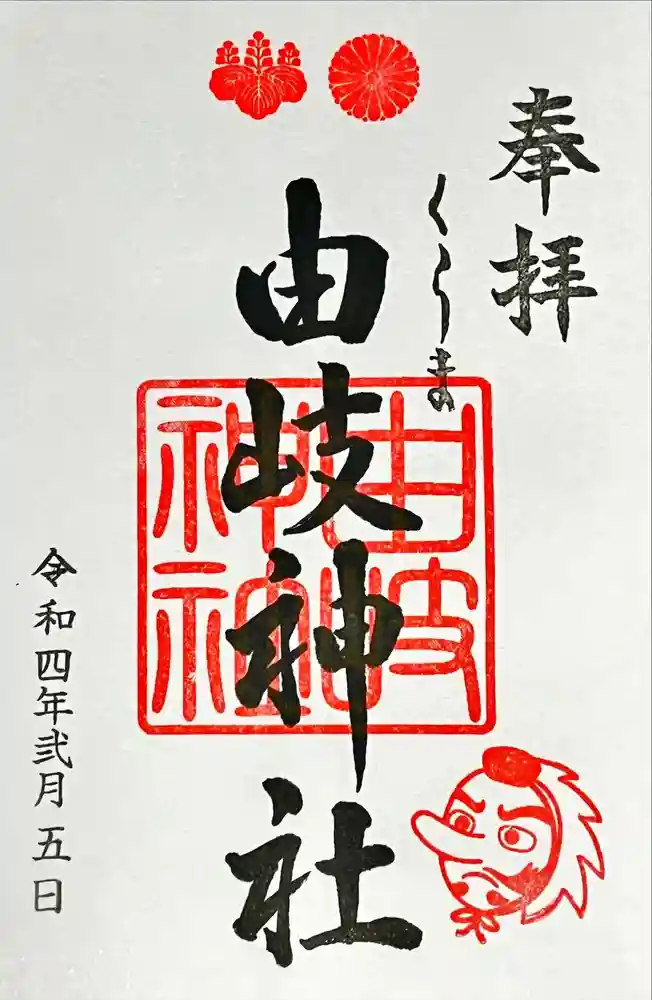 奉拝
くらま
由岐神社
由岐神社
令和四年弐月五日